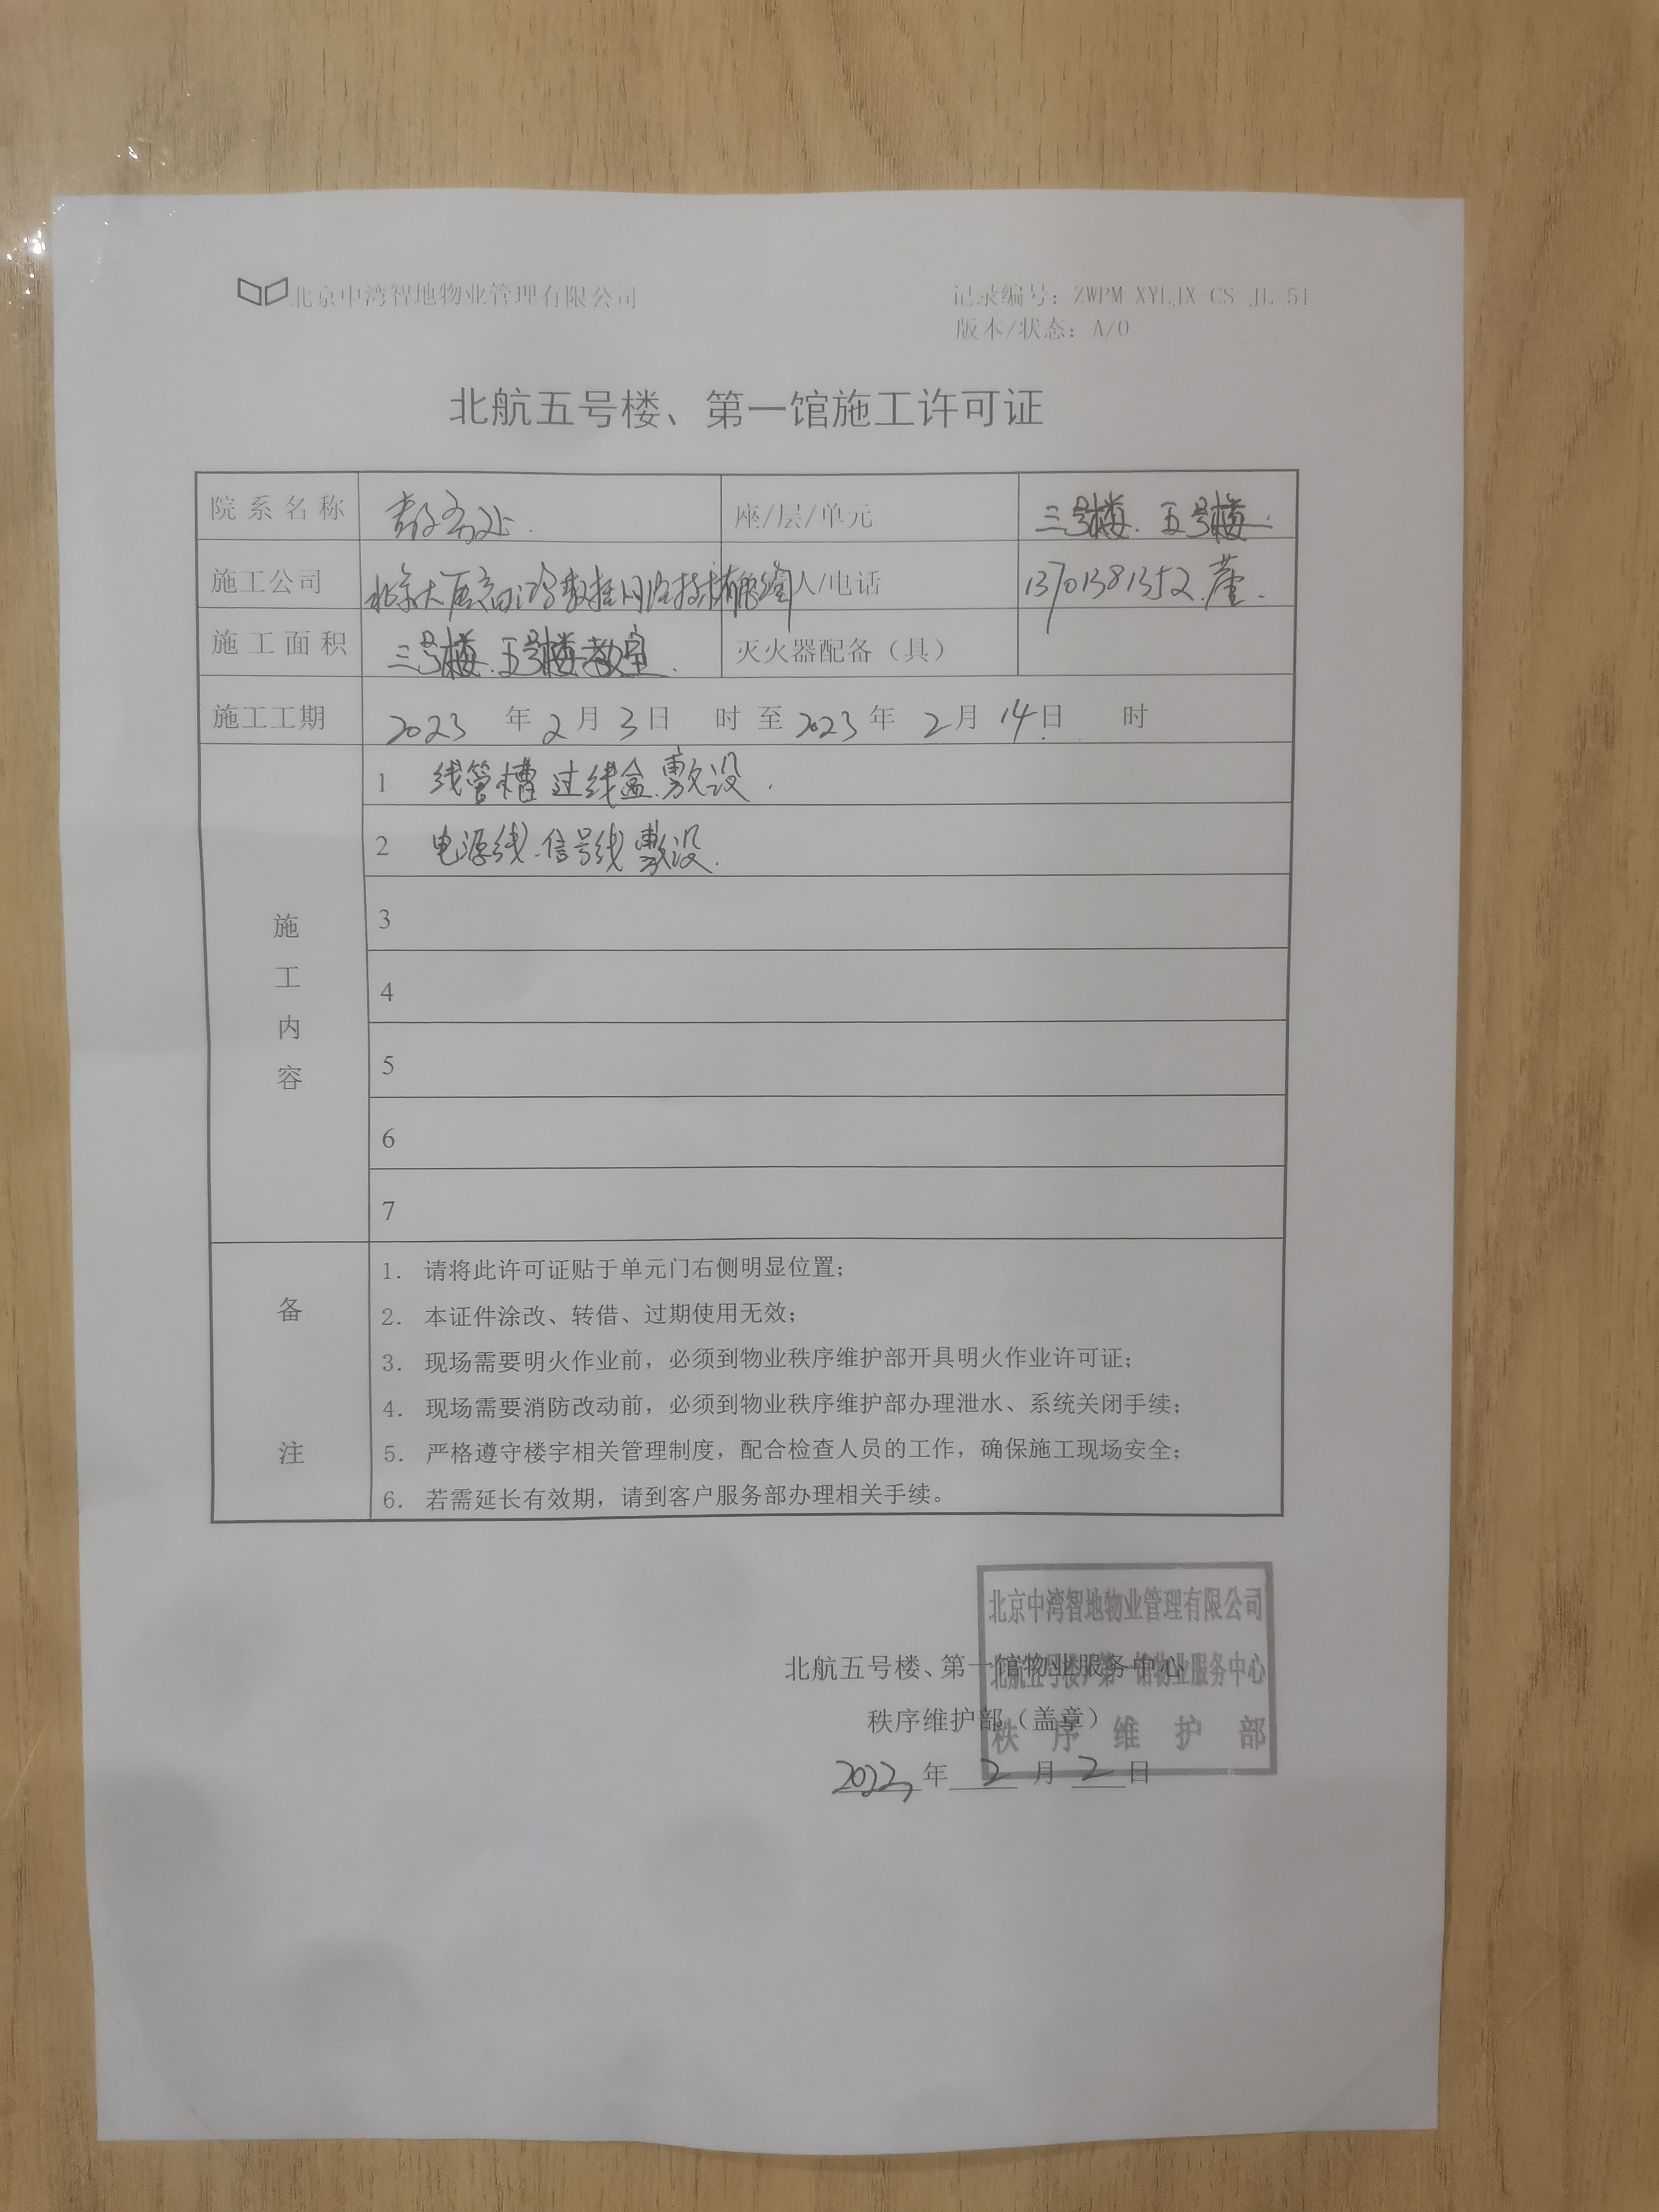 北京中湾智地物业管理有限公司
记录编号：ZWPM XYLJX CS JL 51
版本/状态：A/0
北航五号楼、第一馆施工许可证
院系名称 教务处. 座/层/单元 三号楼. 五号楼.
施工公司 北京大 数 网络技术有限公司 人/电话 13701381352. 董.
施工面积 三号楼.五号楼教室. 灭火器配备（具）
施工工期 2023 年 2 月 3 日 时 至 2023 年 2 月 14 日 时
施工内容
1 线管槽 过线盒.敷设.
2 电源线.信号线 敷设.
3
4
5
6
7
备注
1. 请将此许可证贴于单元门右侧明显位置；
2. 本证件涂改、转借、过期使用无效；
3. 现场需要明火作业前，必须到物业秩序维护部开具明火作业许可证；
4. 现场需要消防改动前，必须到物业秩序维护部办理泄水、系统关闭手续；
5. 严格遵守楼宇相关管理制度，配合检查人员的工作，确保施工现场安全；
6. 若需延长有效期，请到客户服务部办理相关手续。
北京中湾智地物业管理有限公司
北航五号楼、第一馆物业服务中心
北航五号楼、第一馆物业服务中心
秩序维护部（盖章）
秩序维护部
年 2 月 2 日